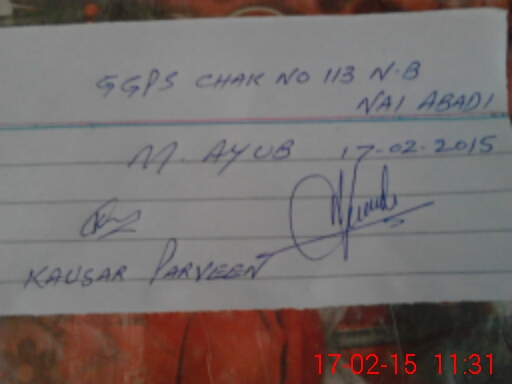 GGPS CHAK NO 113 N.B
NAI ABADI
M. AYUB 17-02-2015
KAUSAR PARVEEN
17-02-15 11:31